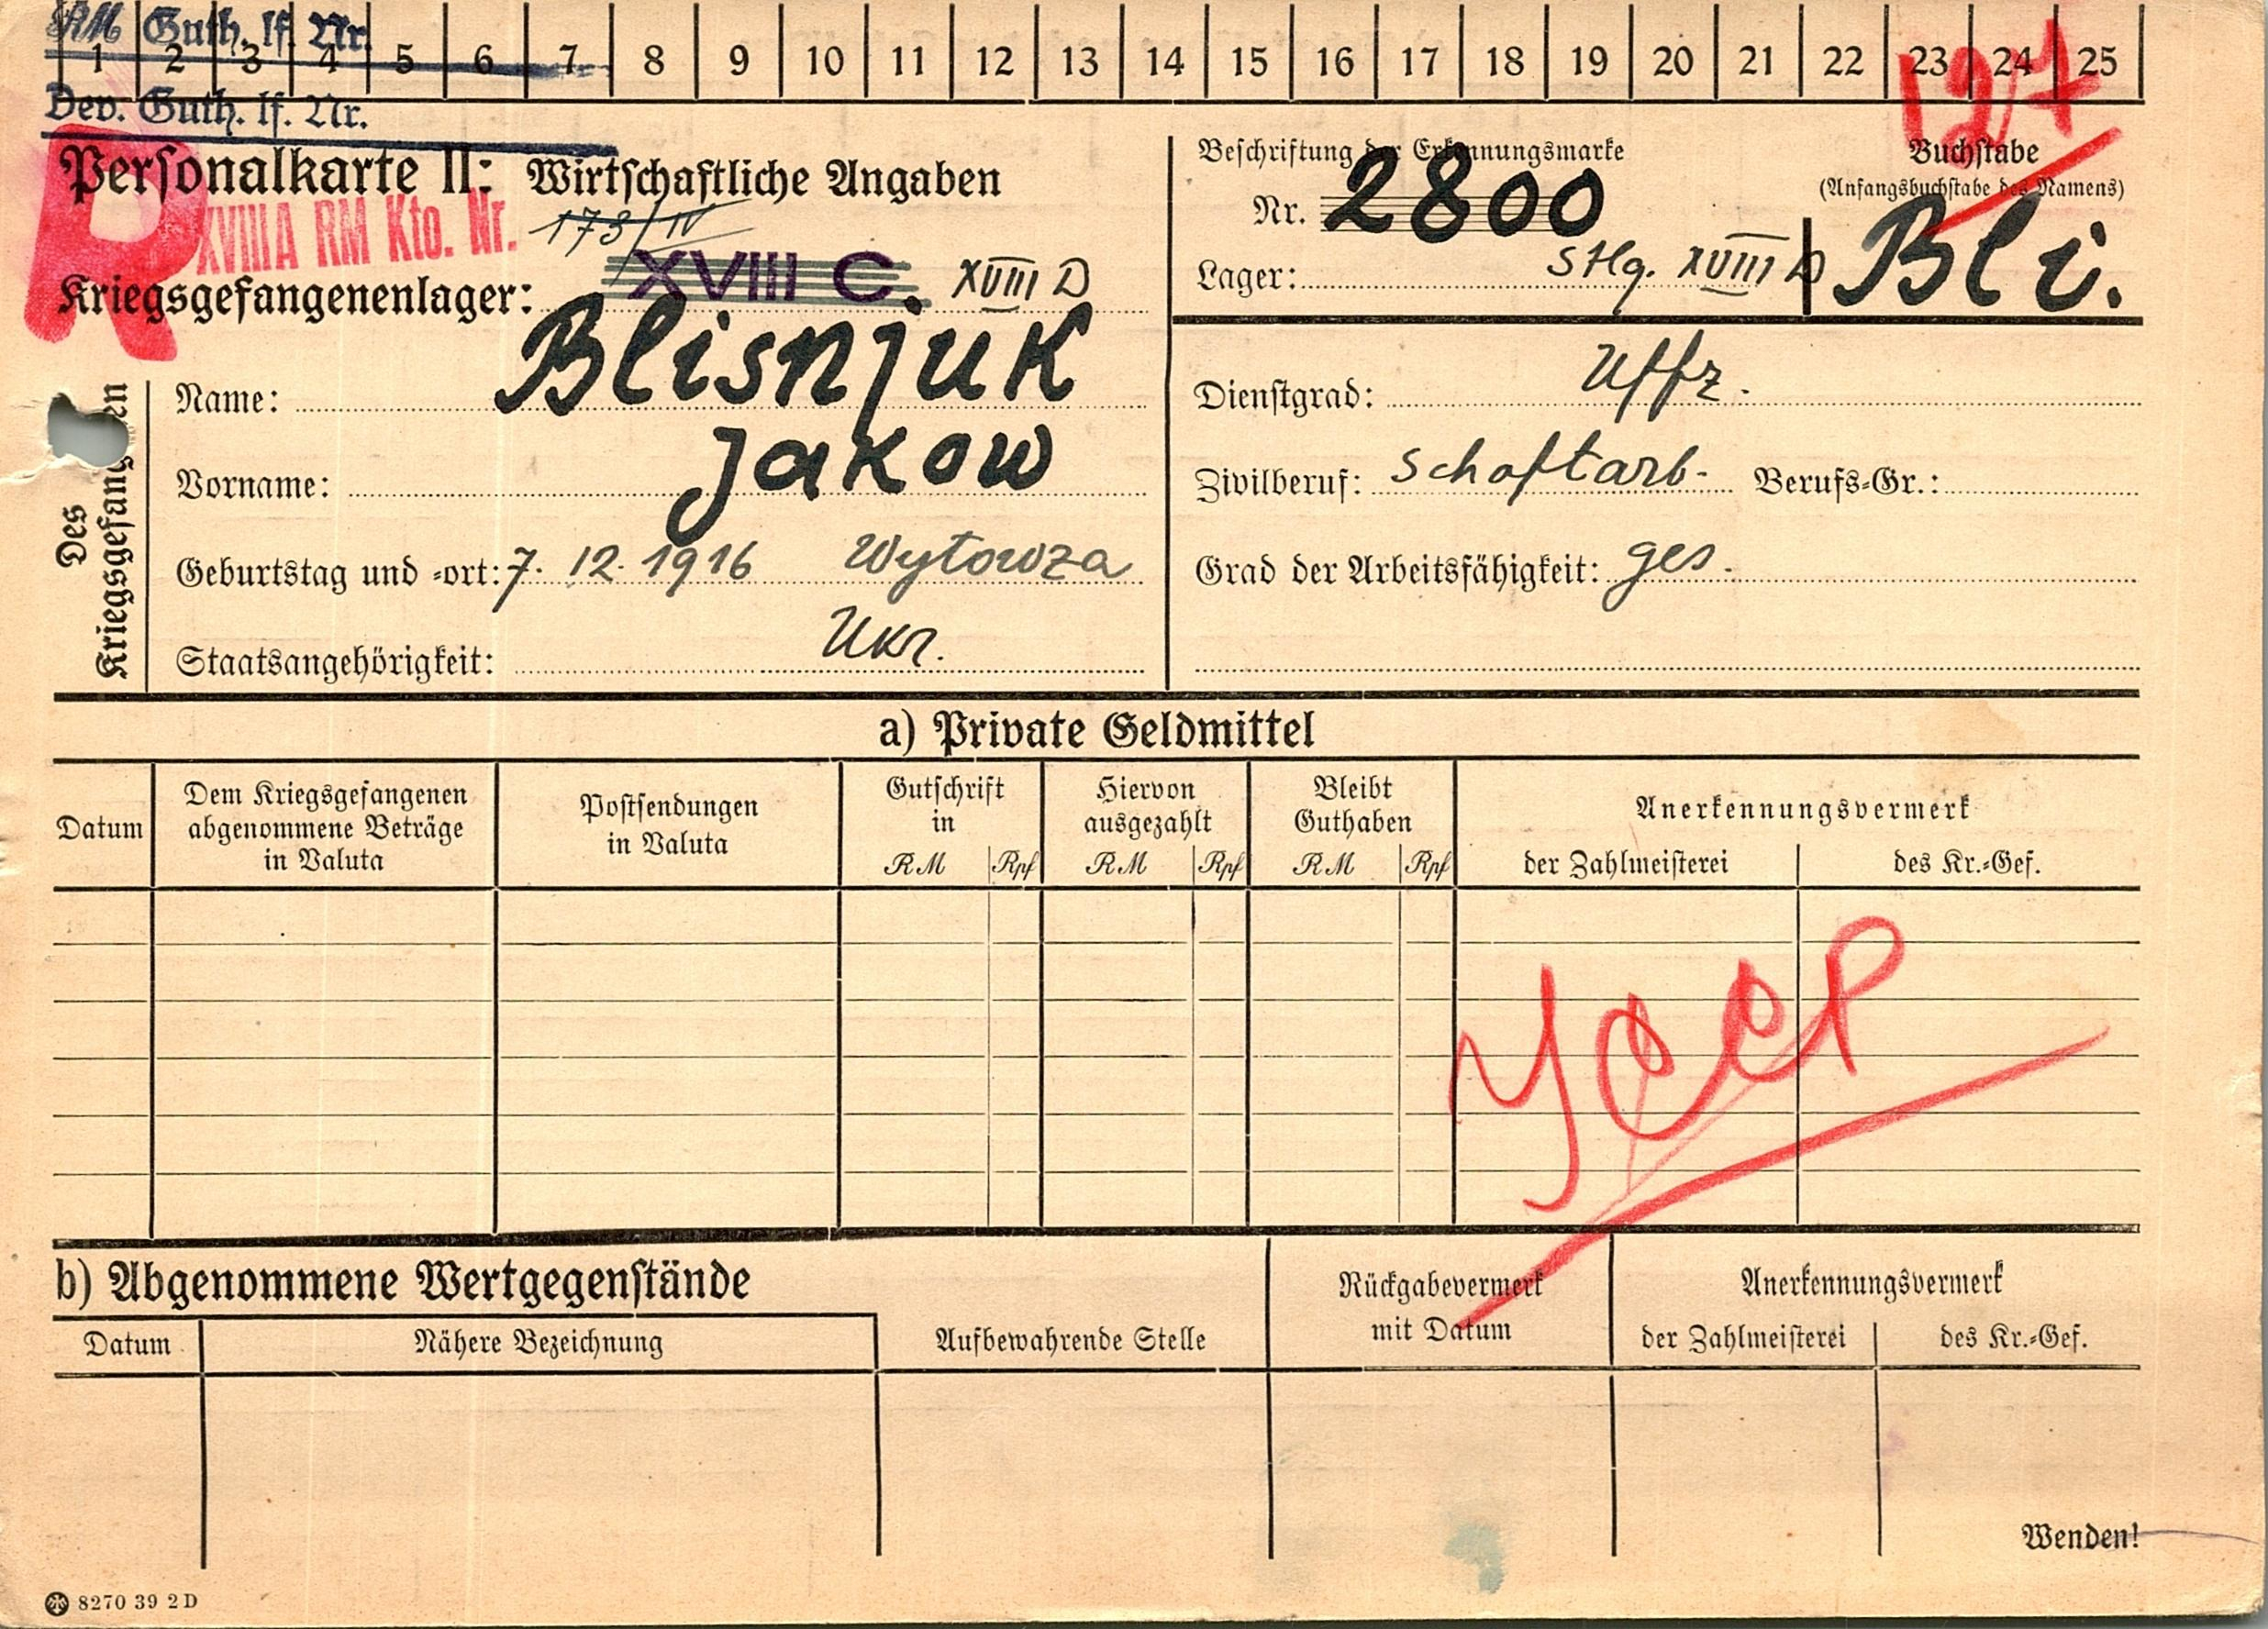 RM Guth. lf. Nr.
1 2 3 4 5 6 7 8 9 10 11 12 13 14 15 16 17 18 19 20 21 22 23 24 25
Dev. Guth. lf. Nr.
Personalkarte II: Wirtschaftliche Angaben
XVIIIA RM Kto. Nr.
173/IV
Kriegsgefangenenlager: XVIII C. XVIII D
Beschriftung der Erkennungsmarke
Nr. 2800
Lager: Stlg. XVIII D
Buchstabe
(Anfangsbuchstabe des Namens)
Bli.
R
Des Kriegsgefangenen
Name: Blisnjuk
Vorname: Jakow
Geburtstag und -ort: 7. 12. 1916 Wytowza
Staatsangehörigkeit: Ukr.
Dienstgrad: Uffz.
Zivilberuf: Schaftarb. Berufs-Gr.:
Grad der Arbeitsfähigkeit: ges.
a) Private Geldmittel
Datum
Dem Kriegsgefangenen
abgenommene Beträge
in Valuta
Postsendungen
in Valuta
Gutschrift
in
RM Rpf
Hiervon
ausgezahlt
RM Rpf
Bleibt
Guthaben
RM Rpf
Anerkennungsvermerk
der Zahlmeisterei des Kr.-Gef.
УССР
b) Abgenommene Wertgegenstände
Datum Nähere Bezeichnung
Aufbewahrende Stelle
Rückgabevermerk
mit Datum
Anerkennungsvermerk
der Zahlmeisterei des Kr.-Gef.
Wenden!
8270 39 2 D